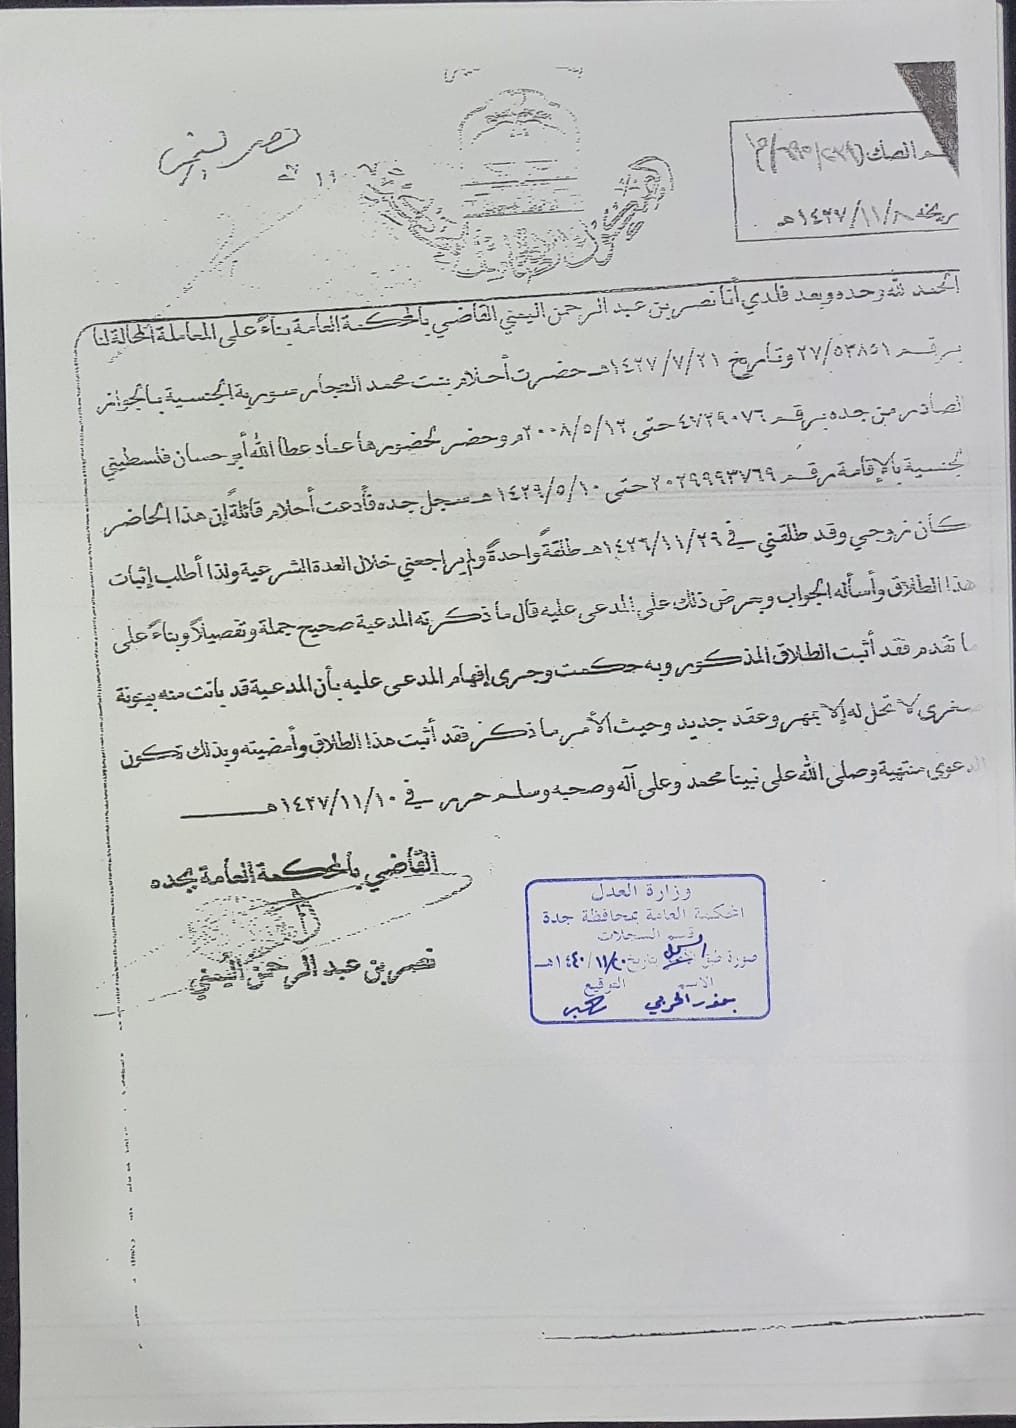 نصر
ـم الصك
ـريخه ١٤٢٧/١١/٨هـ
الحمد لله وحده وبعد فلدي أنا نصر بن عبد الرحمن اليمني القاضي بالمحكمة العامة بناءً على المعاملة المحالة لنا
برقم ٢٧/٥٣٨٥١ وتاريخ ١٤٢٧/٧/٢١هـ حضرت أحلام بنت محمد النجار سورية الجنسية بالجواز
لصادر من جده برقم ٤٧٢٩٠٧٦ حتى ٢٠٠٨/٥/١٢م وحضر لحضورها عماد عطا الله أبو حسان فلسطيني
لجنسية بالإقامة رقم ٢٠٢٩٩٩٣٧٦٩ حتى ١٤٢٩/٥/١٠هـ سجل جده فأدعت أحلام قائلةً إن هذا الحاضر
كان زوجي وقد طلقني في ١٤٢٦/١١/٢٩هـ طلقةً واحدةً ولم يراجعني خلال العدة الشرعية ولذا أطلب إثبات
هذا الطلاق وأسأله الجواب وبعرض ذلك على المدعى عليه قال ما ذكرته المدعية صحيح جملة وتفصيلاً وبناءً على
ما تقدم فقد أثبت الطلاق المذكور وبه حكمت وجرى إفهام المدعى عليه بأن المدعية قد بانت منه بينونة
صغرى لا تحل له إلا بمهر وعقد جديد وحيث الأمر ما ذكر فقد أثبت هذا الطلاق وأمضيته وبذلك تكون
الدعوى منتهية وصلى الله على نبينا محمد وعلى آله وصحبه وسلم حرر في ١٤٢٧/١١/١٠هـ
القاضي بالمحكمة العامة بجده
نصر بن عبد الرحمن اليمني
وزارة العدل
المحكمة العامة بمحافظة جدة
قسم السجلات
صورة طبق بتاريخ ١٤٤٠/١١/٢٠هـ
الاسم التوقيع
الحربي